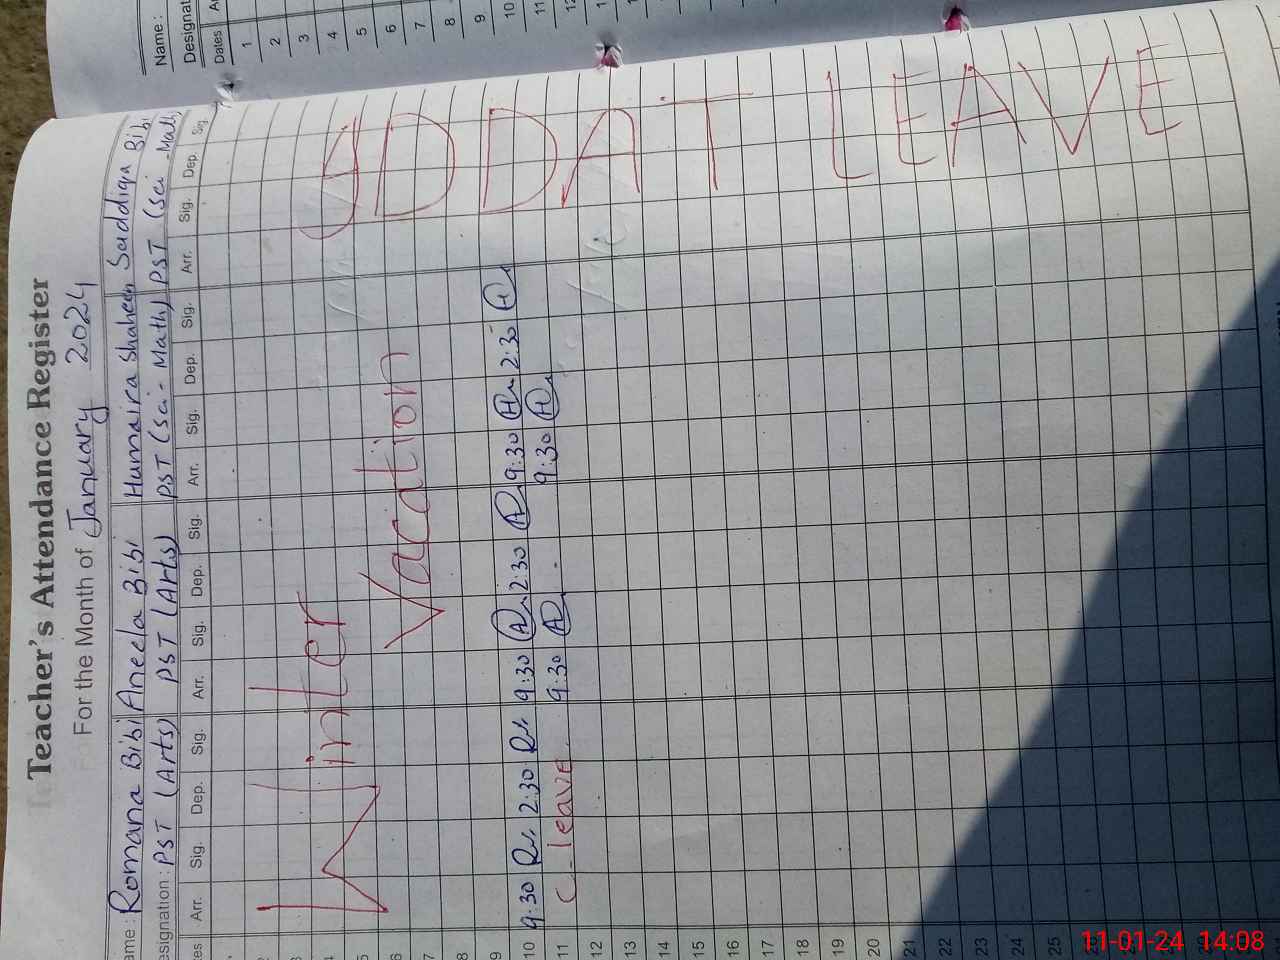 Teacher's Attendance Register
For the Month of January 2024
ame : Romana Bibi Aneela Bibi Humaira Shaheen Saddiqa Bibi
esignation : PST (Arts) PST (Arts) PST (Sci - Math) PST (Sci - Math)
tes Arr. Sig. Dep. Sig. Arr. Sig. Dep. Sig. Arr. Sig. Dep. Sig. Arr. Sig. Dep. Sig.
2
3
4
5
6
7
8
9
10 9:30 2:30 9:30 2:30 9:30 2:30
11 C. leave 9:30 9:30
12
13
14
15
16
17
18
19
20
21
22
23
24
25
Winter
Vacation
IDDAT LEAVE
Name :
Designat
Dates
1
2
3
4
5
6
7
8
9
10
11
12
11-01-24 14:08